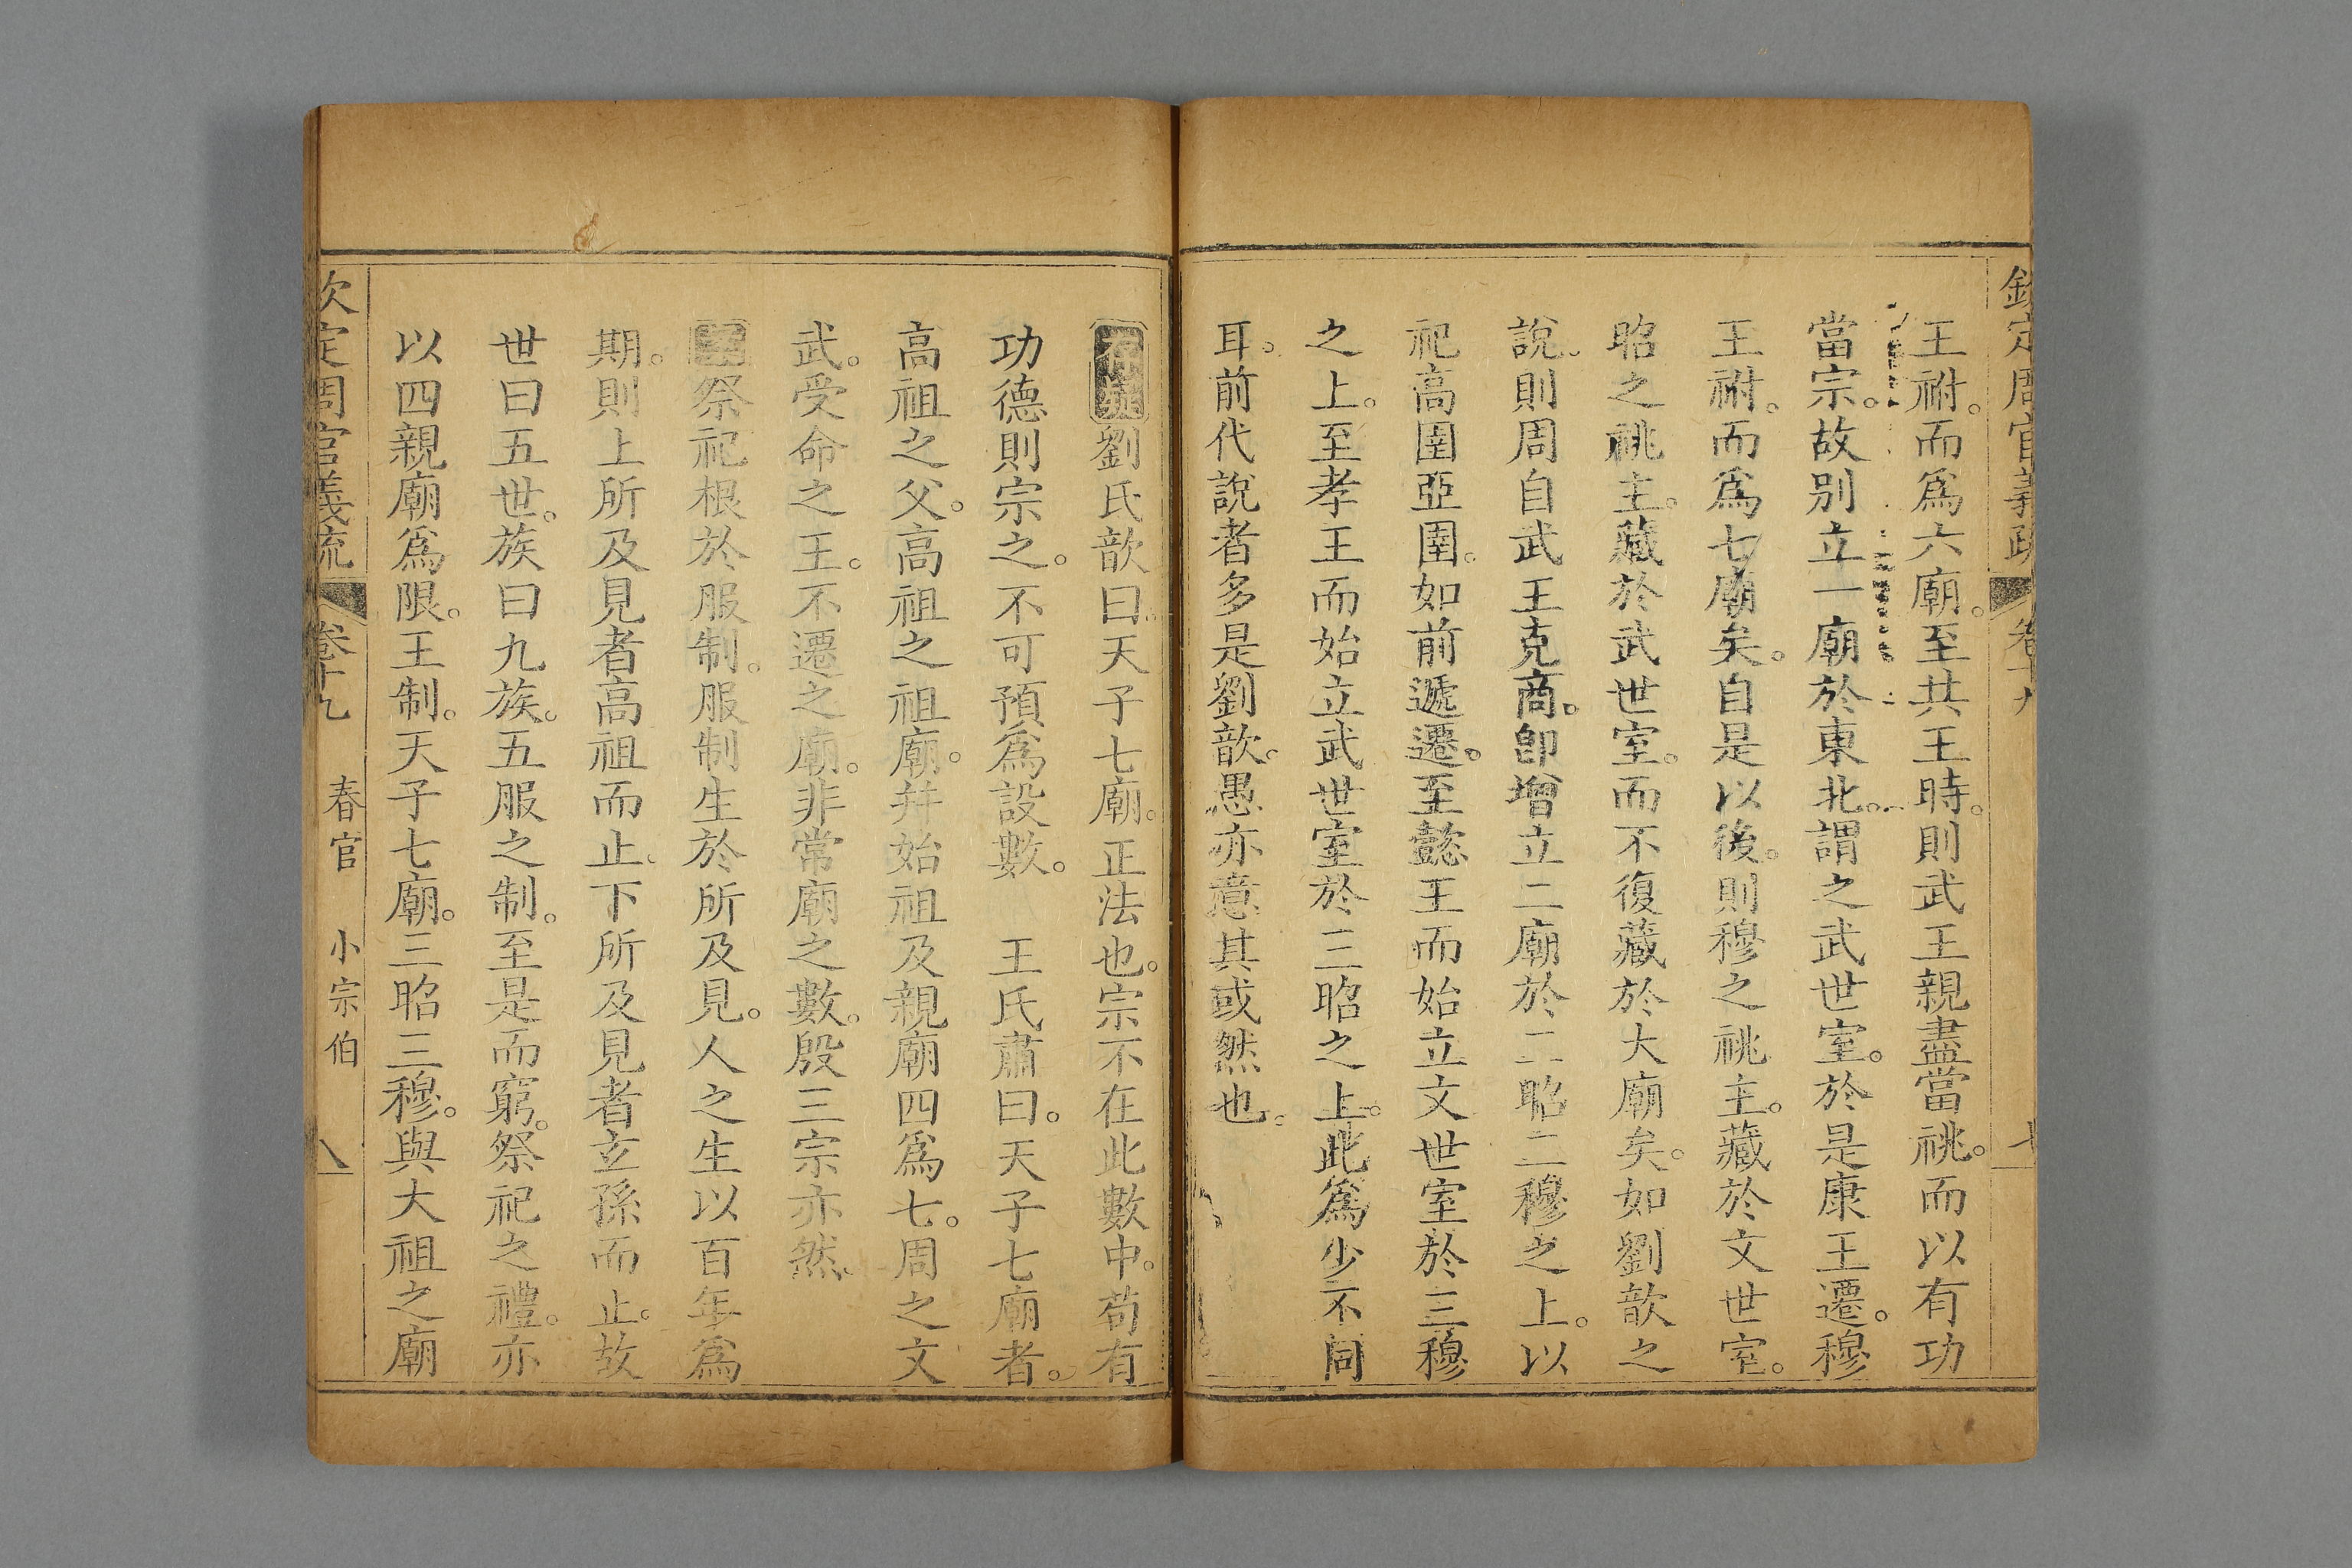 欽定周官義疏 卷十九 七
王祔。而爲六廟。至共王時。則武王親盡當祧。而以有功
當宗。故别立一廟於東北。謂之武世室。於是康王遷。穆
王祔。而爲七廟矣。自是以後。則穆之祧主。藏於文世室。
昭之祧主。藏於武世室。而不復藏於大廟矣。如劉歆之
說。則周自武王克商。卽增立二廟於二昭二穆之上。以
祀高圉亞圉。如前遞遷。至懿王而始立文世室於三穆
之上。至孝王而始立武世室於三昭之上。此爲少不同
耳。前代說者多是劉歆。愚亦意其或然也。
存疑劉氏歆曰。天子七廟。正法也。宗不在此數中。苟有
功德則宗之。不可預爲設數。 王氏肅曰。天子七廟者。
高祖之父。高祖之祖廟。幷始祖及親廟四爲七。周之文
武。受命之王。不遷之廟。非常廟之數。殷三宗亦然。
祭祀根於服制。服制生於所及見。人之生以百年爲
期。則上所及見者高祖而止。下所及見者玄孫而止。故
世曰五世。族曰九族。五服之制。至是而窮。祭祀之禮。亦
以四親廟爲限。王制。天子七廟。三昭三穆。與大祖之廟
欽定周官義疏 卷十九 春官 小宗伯 八